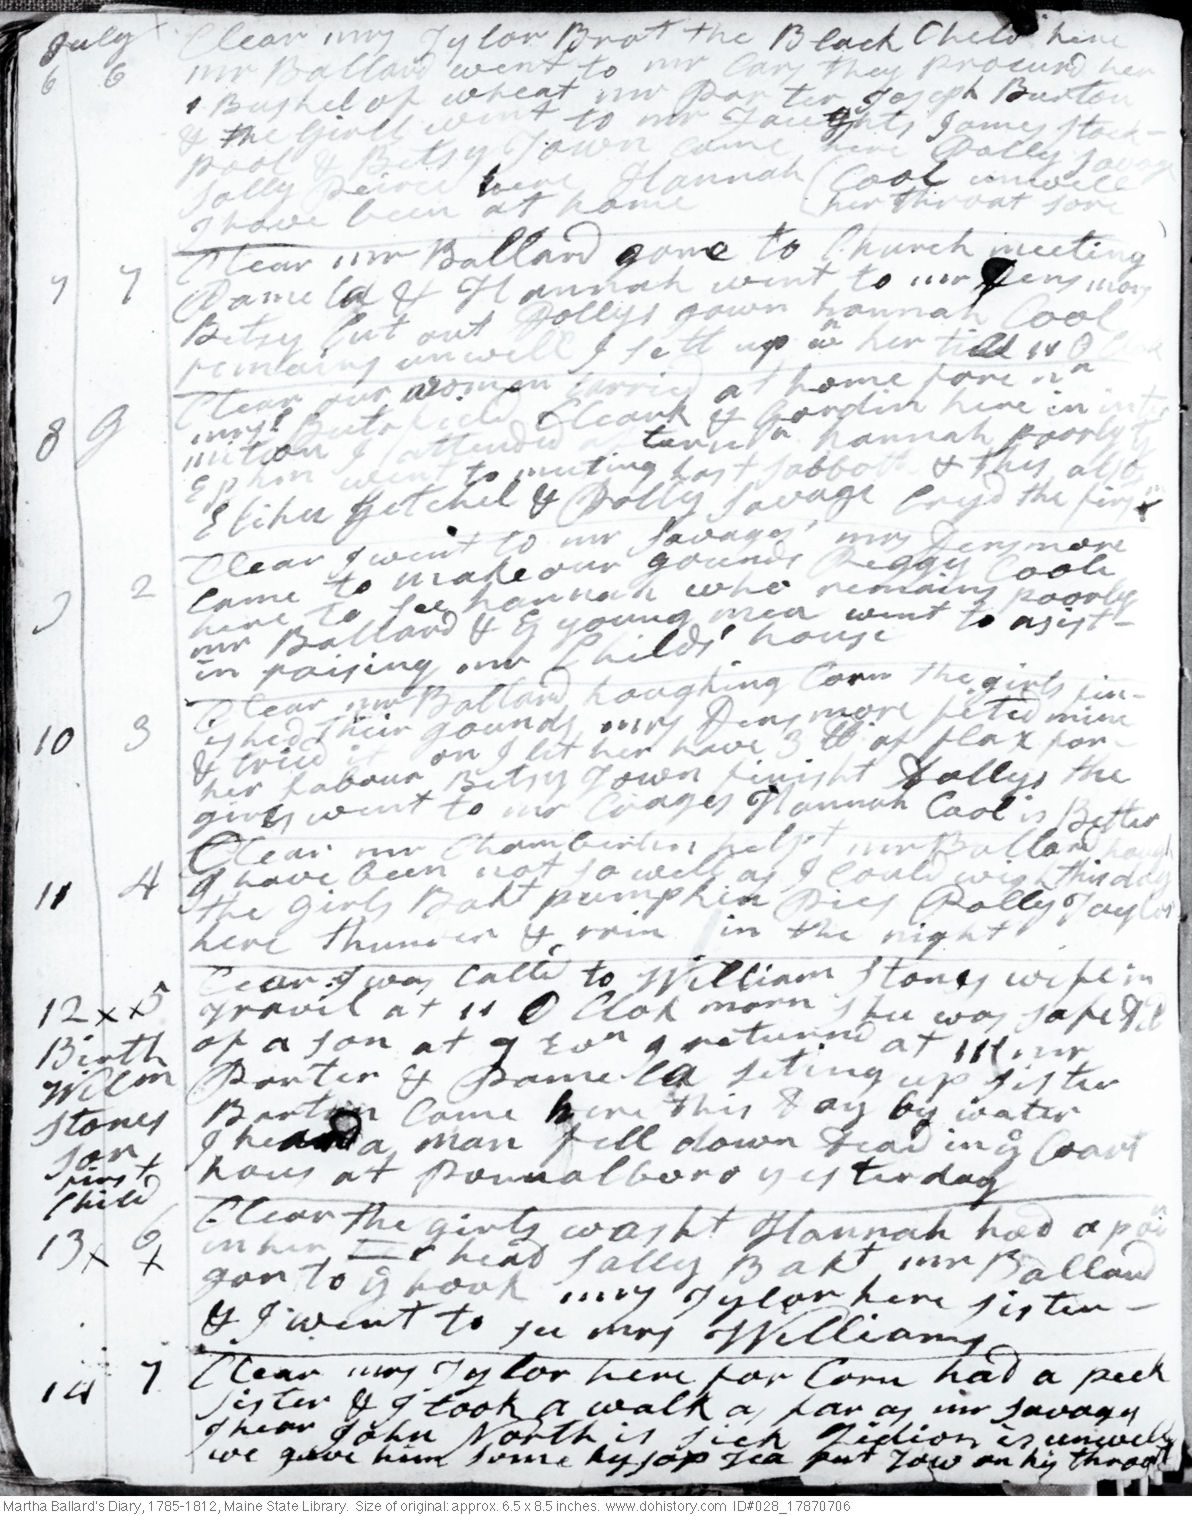 July Clear mrs Tylor Brot the Black Child here
6 6 mr Ballard went to mr Cars they procurd her
1 Bushel of wheat mr Porter Joseph Burton
& the Girll went to mr Faughts James Stack-
pool & Betsy Town Came here Polly Savage
Sally Peirce here Hannah (Cool unwell
I have been at home (her throat sore
7 7 Clear mr Ballard gone to Church meeting
Pamela & Hannah went to mr Densmors
Betsy Cut out Dollys gown hannah Cool
remains unwell I sett up wn her till 11 O Clok
8 G Clear our women tarried at home fore nn
mrss Buterfield Cleark & Gordin here in inter
mition I attended aftern n hannah poorly
Ephm went to meeting last sabbath & this also
Elihu Getchel & Polly Savage Cryd the first
9 2 Clear I went to mr Savages' mrs Densmore
Came to make our gounds Peggy Cool
here to see hannah who remains poorly
mr Ballard & ye young men went to asist-
in raising mr Childs' house
10 3 Clear mr Ballard houghing Corn the girls fin-
ished their gounds mrs Densmore fited mine
& tried it on I let her have 3 lb of flax for-
her labour Betsy Town finisht Dollys the
girls went to mr Crages Hannah Cool is Better
11 4 Clear mr Chamberlin helpt mr Ballard hough
I have been not so well as I Could wish this day
the girls Bakt pumpkin Pies Polly Taylor
here thunder & rain in the night
12 x x 5 Clear I was Calld to William Stones wife in
Travil at 11 O Clok morn shee was safe DD
Birth of a son at 9 Evn I returnd at 11 mr
Willm Porter & Pamela seting up sister
Stones Barton Came here this Day by water
son I heard a man fell down Dead in ye Court
first hous at Pounalboro yesterday
Child
13 x 6 x Clear the girls washt Hannah had a pain
in her head Sally Bakt mr Ballard
gon to ye hook mrs Tylor here sister-
& I went to see mrs Williams
14 7 Clear mrs Tylor here for Corn had a peck
Sister & I took a walk as far as mr Savages
I hear John North is sick Gidion is unwell
we gave him some hysop Tea put Tow on his throat
Martha Ballard's Diary, 1785-1812, Maine State Library. Size of original: approx. 6.5 x 8.5 inches. www.dohistory.com ID#028_17870706